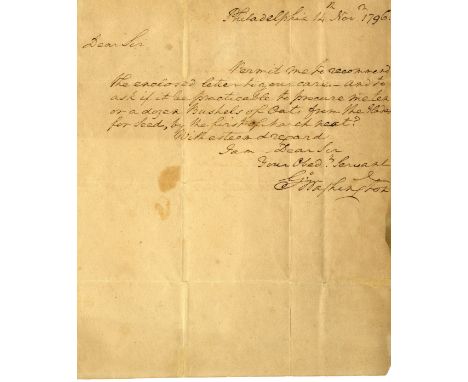 Philadelphia 14th Novr 1796.
Dear Sir
Permit me to recommend
the enclosed letter to your care.—and to
ask if it be practicable to procure me ten
or a dozen Bushels of Oats from the
for seed, by the first of March next?
With esteem & regard
I am Dear Sir
Your Obedt Servant
Go Washington